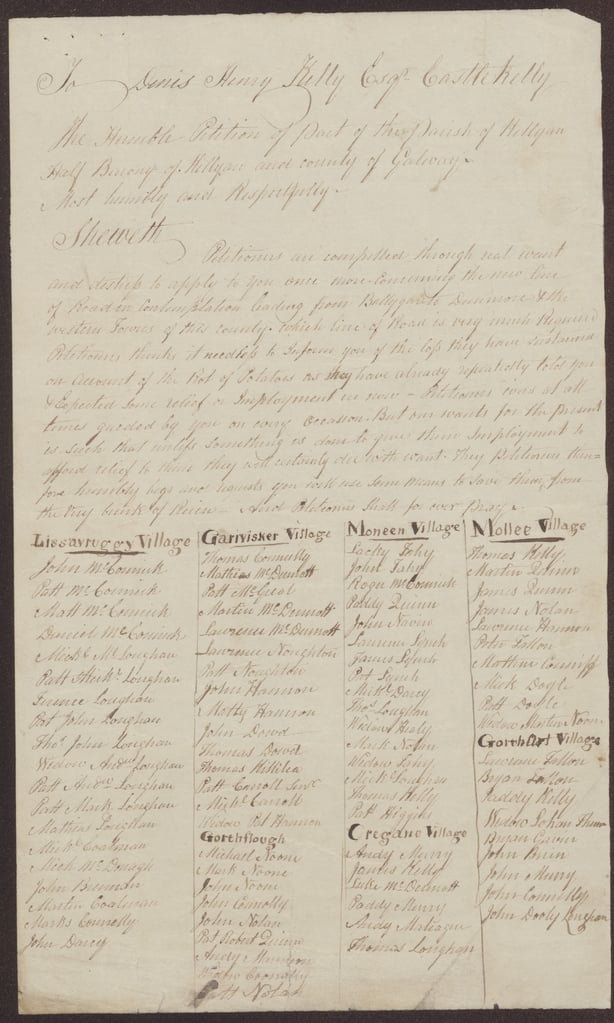 To Denis Henry Kelly Esqr. Castle Kelly
The Humble Petition of part of the Parish of Killyan
Half Barony of Killyan and county of Galway.
Most humbly and Respectfully.
Sheweth
Petitioners are compelled through real want
and distress to apply to you once more concerning the new line
of Road in Contemplation leading from Ballygar to Dunmore & the
western Towns of this county. which line of Road is very much Required
Petitioners thinks it needless to Inform you of the loss they have sustained
on account of the Rot of Potatoes as they have already repeatedly told you
& Expected some relief or Imployment ere now - Petitioners was at all
times guided by you on every Occasion. But our wants for the Present
is such that unless something is done to give them Imployment to
afford relief to them they will certainly die with want. They Petitioners there-
fore humbly begs and requests you will use some means to save them from
the very brink of Ruin. And Petitioners Shall for ever Pray.
Lissavruggy Village
John McCormick
Patt McCormick
Matt McCormick
Daniel McCormick
Mickl. Loughan
Patt Mickl. Loughan
Terence Loughan
Pat John Loughan
Thos. John Loughan
Widow Andw. Loughan
Patt Andw. Loughan
Patt Mark Loughan
Mathias Loughan
Mickl. Coalman
Mich McDonagh
John Brennan
Martin Coalman
Marks Connelly
John Darcy
Garrivisker Village
Thomas Connolly
Mathias McDermott
Patt McGreal
Martin McDermott
Lawrence McDermott
Lawrence Noughton
Patt Noughton
John Hannon
Matty Hannon
John Dowd
Thomas Dowd
Thomas Killilea
Patt Carroll Senr.
Mickl. Carroll
Widow Pat Hannon
Gorthflough
Michael Noone
Mark Noone
John Noone
John Connolly
John Nolan
Pat Robert Quinn
Andy
Widow
Patt Nolan
Moneen Village
Lacky Fahy
John Fahy
Roger McCormick
Paddy Quinn
John Noone
Laurence Lynch
James Lynch
Pat Lynch
Mickl. Darcy
Thos. Loughan
Widow Healy
Mark Nolan
Widow Fahy
Mickl. Loughan
Thomas Kelly
Patt Higgins
Cregane Village
Andy Murry
James Kelly
Luke McDermott
Paddy Murry
Andy
Thomas Loughan
Mollee Village
Thomas Kelly
Martin Quinn
James Quinn
James Nolan
Lawrence Hannon
Peter Fallon
Mathew Conniff
Mick Doyle
Patt Doyle
Widow Martin Noone
Village
Lawrence Fallon
Bryan Fallon
Paddy Kelly
Widow
Bryan Gavin
John
John Murry
John Connolly
John Dooly Loughan